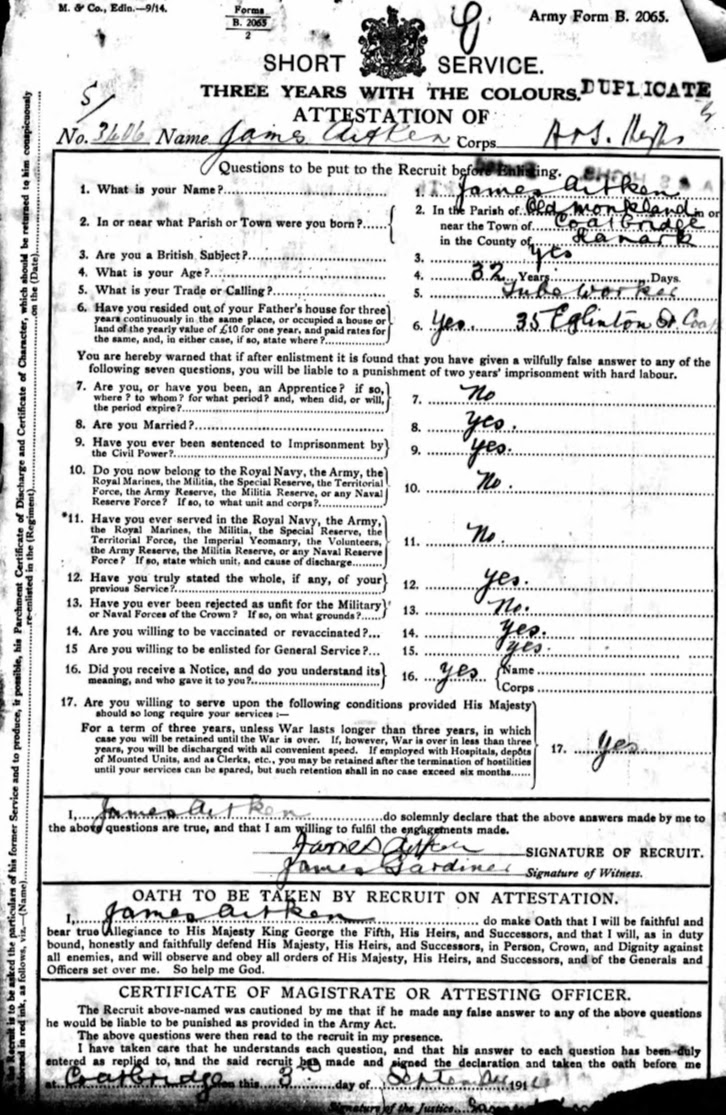 M. & Co., Edin.—9/14.
Forms
B. 2065
2
Army Form B. 2065.
SHORT SERVICE.
THREE YEARS WITH THE COLOURS.
DUPLICATE
ATTESTATION OF
No. 3406 Name James Aitken Corps
Questions to be put to the Recruit before Enlisting.
1. What is your Name?
1. James Aitken
2. In or near what Parish or Town were you born?
2. In the Parish of Old Monkland in or
near the Town of Coatbridge
in the County of Lanark
3. Are you a British Subject?
3. Yes
4. What is your Age?
4. 32 Years Days.
5. What is your Trade or Calling?
5. Tube Worker
6. Have you resided out of your Father's house for three
years continuously in the same place, or occupied a house or
land of the yearly value of £10 for one year, and paid rates for
the same, and, in either case, if so, state where?
6. Yes. 35 Eglinton St
You are hereby warned that if after enlistment it is found that you have given a wilfully false answer to any of the
following seven questions, you will be liable to a punishment of two years' imprisonment with hard labour.
7. Are you, or have you been, an Apprentice? if so,
where? to whom? for what period? and, when did, or will,
the period expire?
7. No
8. Are you Married?
8. Yes.
9. Have you ever been sentenced to Imprisonment by
the Civil Power?
9. Yes.
10. Do you now belong to the Royal Navy, the Army, the
Royal Marines, the Militia, the Special Reserve, the Territorial
Force, the Army Reserve, the Militia Reserve, or any Naval
Reserve Force? If so, to what unit and corps?
10. No.
*11. Have you ever served in the Royal Navy, the Army,
the Royal Marines, the Militia, the Special Reserve, the
Territorial Force, the Imperial Yeomanry, the Volunteers,
the Army Reserve, the Militia Reserve, or any Naval Reserve
Force? If so, state which unit, and cause of discharge
11. No.
12. Have you truly stated the whole, if any, of your
previous Service?
12. Yes.
13. Have you ever been rejected as unfit for the Military
or Naval Forces of the Crown? If so, on what grounds?
13. No.
14. Are you willing to be vaccinated or revaccinated?...
14. Yes.
15 Are you willing to be enlisted for General Service?...
15. Yes.
16. Did you receive a Notice, and do you understand its
meaning, and who gave it to you?
16. Yes Name
Corps
17. Are you willing to serve upon the following conditions provided His Majesty
should so long require your services :—
For a term of three years, unless War lasts longer than three years, in which
case you will be retained until the War is over. If, however, War is over in less than three
years, you will be discharged with all convenient speed. If employed with Hospitals, depôts
of Mounted Units, and as Clerks, etc., you may be retained after the termination of hostilities
until your services can be spared, but such retention shall in no case exceed six months
17. Yes
I, James Aitken do solemnly declare that the above answers made by me to
the above questions are true, and that I am willing to fulfil the engagements made.
James Aitken SIGNATURE OF RECRUIT.
James Gardiner Signature of Witness.
OATH TO BE TAKEN BY RECRUIT ON ATTESTATION.
I, James Aitken do make Oath that I will be faithful and
bear true Allegiance to His Majesty King George the Fifth, His Heirs, and Successors, and that I will, as in duty
bound, honestly and faithfully defend His Majesty, His Heirs, and Successors, in Person, Crown, and Dignity against
all enemies, and will observe and obey all orders of His Majesty, His Heirs, and Successors, and of the Generals and
Officers set over me. So help me God.
CERTIFICATE OF MAGISTRATE OR ATTESTING OFFICER.
The Recruit above-named was cautioned by me that if he made any false answer to any of the above questions
he would be liable to be punished as provided in the Army Act.
The above questions were then read to the recruit in my presence.
I have taken care that he understands each question, and that his answer to each question has been duly
entered as replied to, and the said recruit has made and signed the declaration and taken the oath before me
at Coatbridge on this 3 day of September 1914
Signature of the Justice
The Recruit is to be asked the particulars of his former Service and to produce, if possible, his Parchment Certificate of Discharge and Certificate of Character, which should be returned to him conspicuously
endorsed in red ink, as follows, viz.—(Name) re-enlisted in the (Regiment) on the (Date).